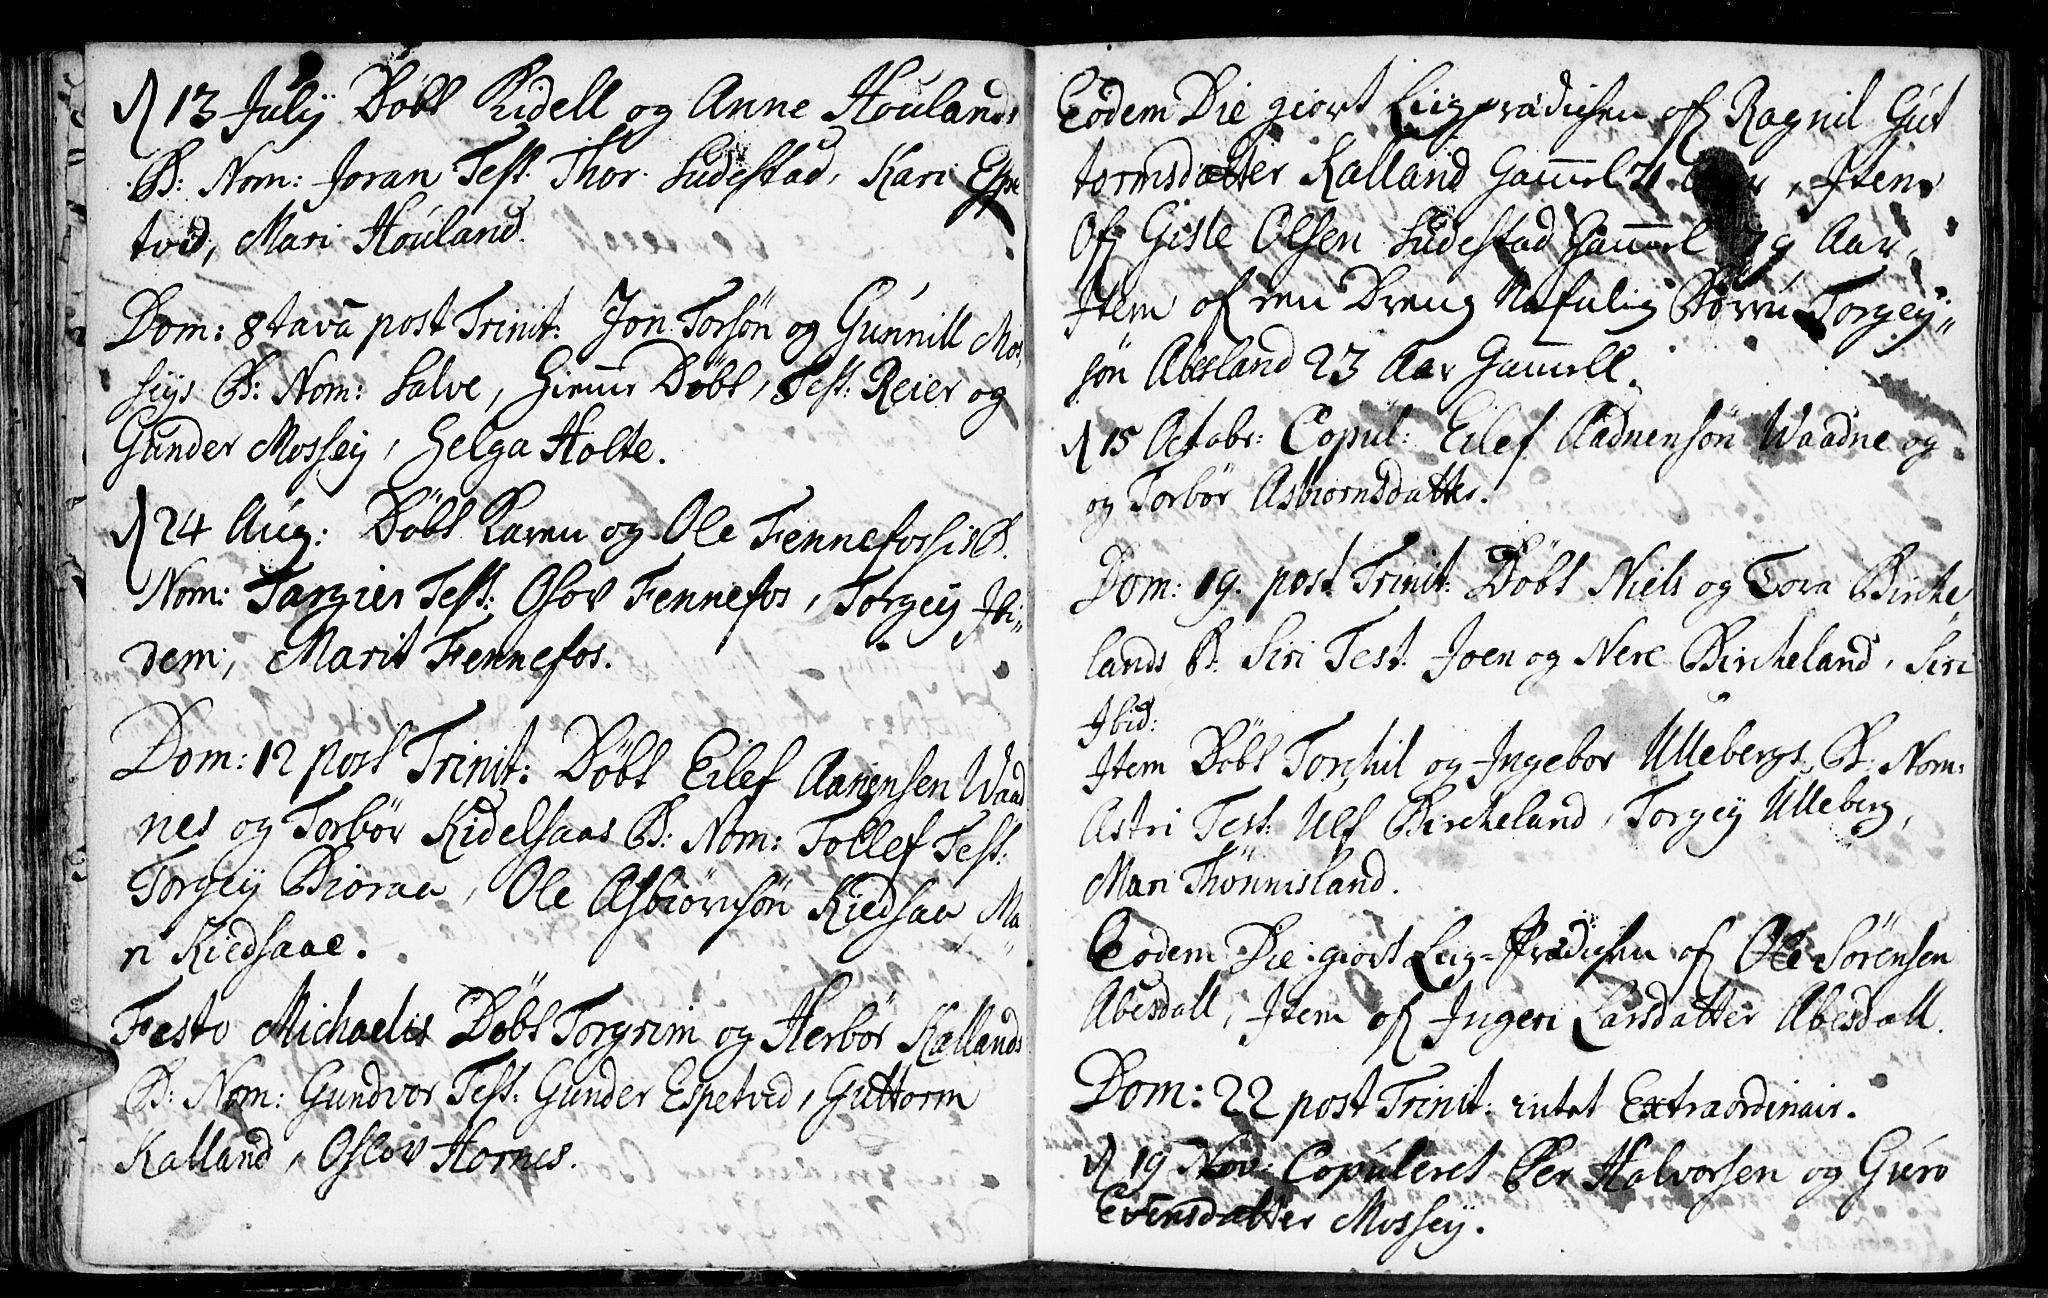 d 13 July Döbt Kidell og Anne Houlands
B: Nom: Joran Test. Thor. Ludestad, Kari Espe
tvid, Mari Houland.
Dom: 8tava post Trinit: Jon Torsön og Gunnill Mos
seys B: Nom: Salve, Hiemr Döbt, Test: Reier og
Gunder Mossey, Helga Holte.
d 24 Aug: Döbt Karen og Ole Fennefossis B.
Nom: Targier Test: Osov Fennefos, Torgey Ibi„
dem, Marit Fennefos.
Dom: 12 post Trinit: Döbt Eilef Aanensen Waad
nes og Torbör Kidelsaas B: Nom: Tollef Test:
Torgey Bioraa, Ole Asbiörnsön Kiedsaa, Ma
ri Kiedsaae.
Festo Michaelis Döbt Torgrim og Herbör Kallands
B: Nom: Gundvor Test: Gunder Espetvid, Guttorm
Kalland, Oslov Hornes.
Eodem Die giort Liigprædichen of Ragnil Gut
tormsdatter Kalland Gammel 71 Aar, Item
Of Gisle Olsen Ludestad Gammel 79 Aar,
Item of een Dreng Nafnlig Torgey„
sön Abesland 23 Aar Gamell.
d 15 Octobr: Copul: Eilef Aadnensön Waadne og
og Torbör Asbiornsdatter.
Dom: 19. post Trinit: Döbt Niels og Tora Birche
lands B: Siri Test: Joen og Nere Bircheland, Siri
Ibid:
Item Döbt Torchil og Ingebor Ullebergs B: Nom:
Astri Test: Ulf Bircheland, Torgey Ulleberg,
Mari Thönnisland.
Eodem Die giort Liig-Prædichen of Ole Sörensen
Abesdall, Item of Ingeri Larsdatter Abesdall.
Dom: 22 post Trinit: intet Extraordinair.
d 19 Nov: Copuleret Per Halvorsen og Guro
Evensdatter Mossey.